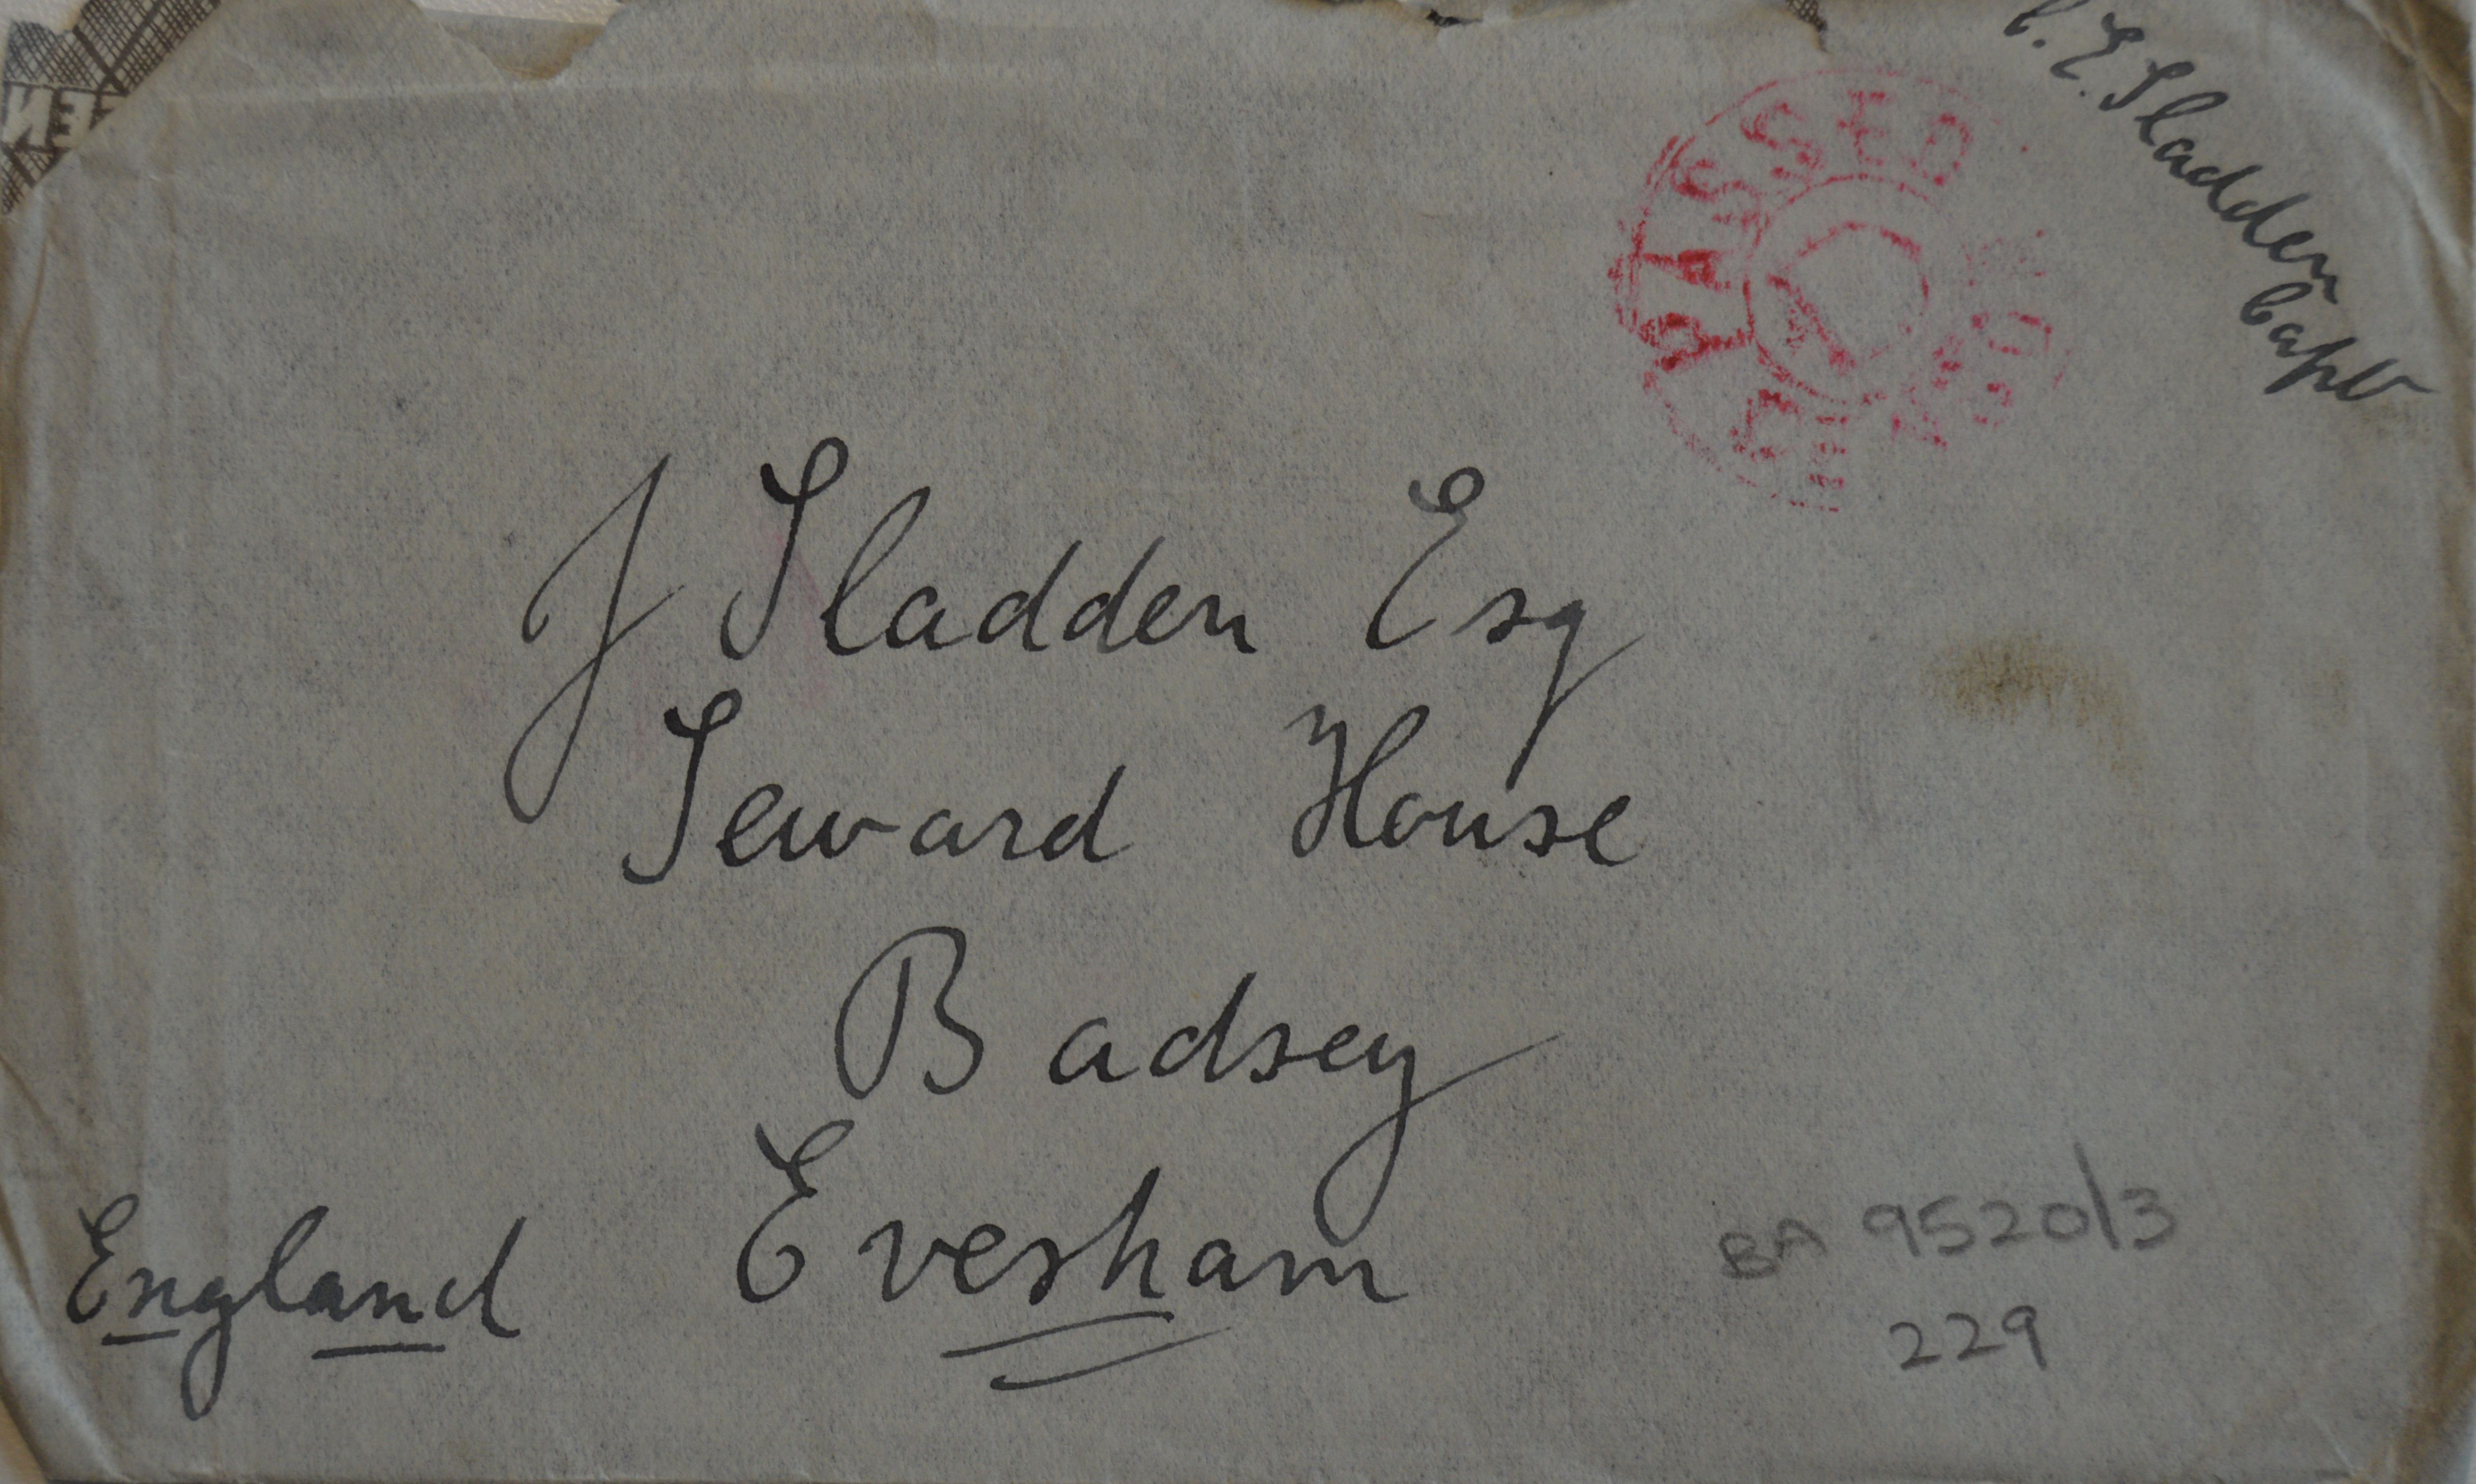 C. E. Sladden
Capt
PASSED
J Sladden Esq
Seward House
Badsey
Evesham
England
BA 9520/3
229